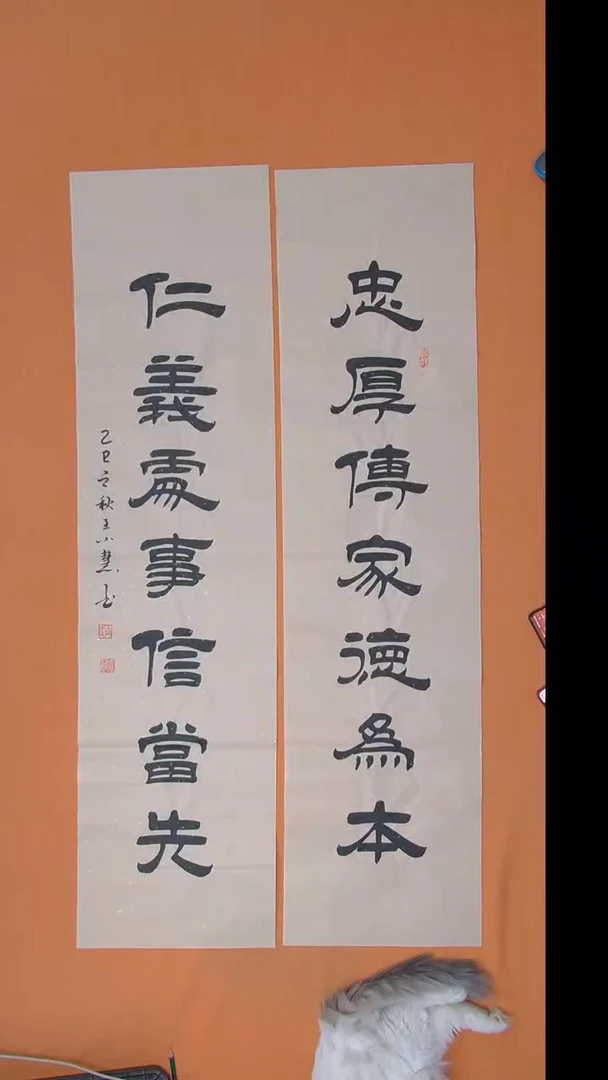 忠厚傳家德為本
仁義處事信當先
乙巳立秋王小慧書